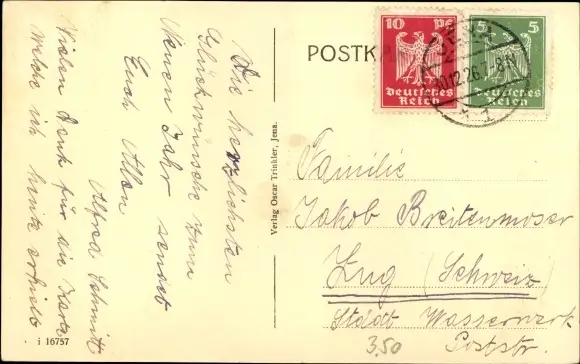 Die herzlichsten
Glückwünsche zum
Neuen Jahr sendet
Euch Allen
Alfred Schmitt
Vielen Dank für die Karte
welche ich heute erhielt
i 16757
Verlag Oscar Trinkler, Jena.
POSTK
10 Pf
Deutsches
Reich
5 5
Deutsches
Reich
JENA
10.12.26.7-8N
Familie
Jakob Breitenmoser
Zug (Schweiz)
Stadt Wasserwerk
Poststr.
3,50